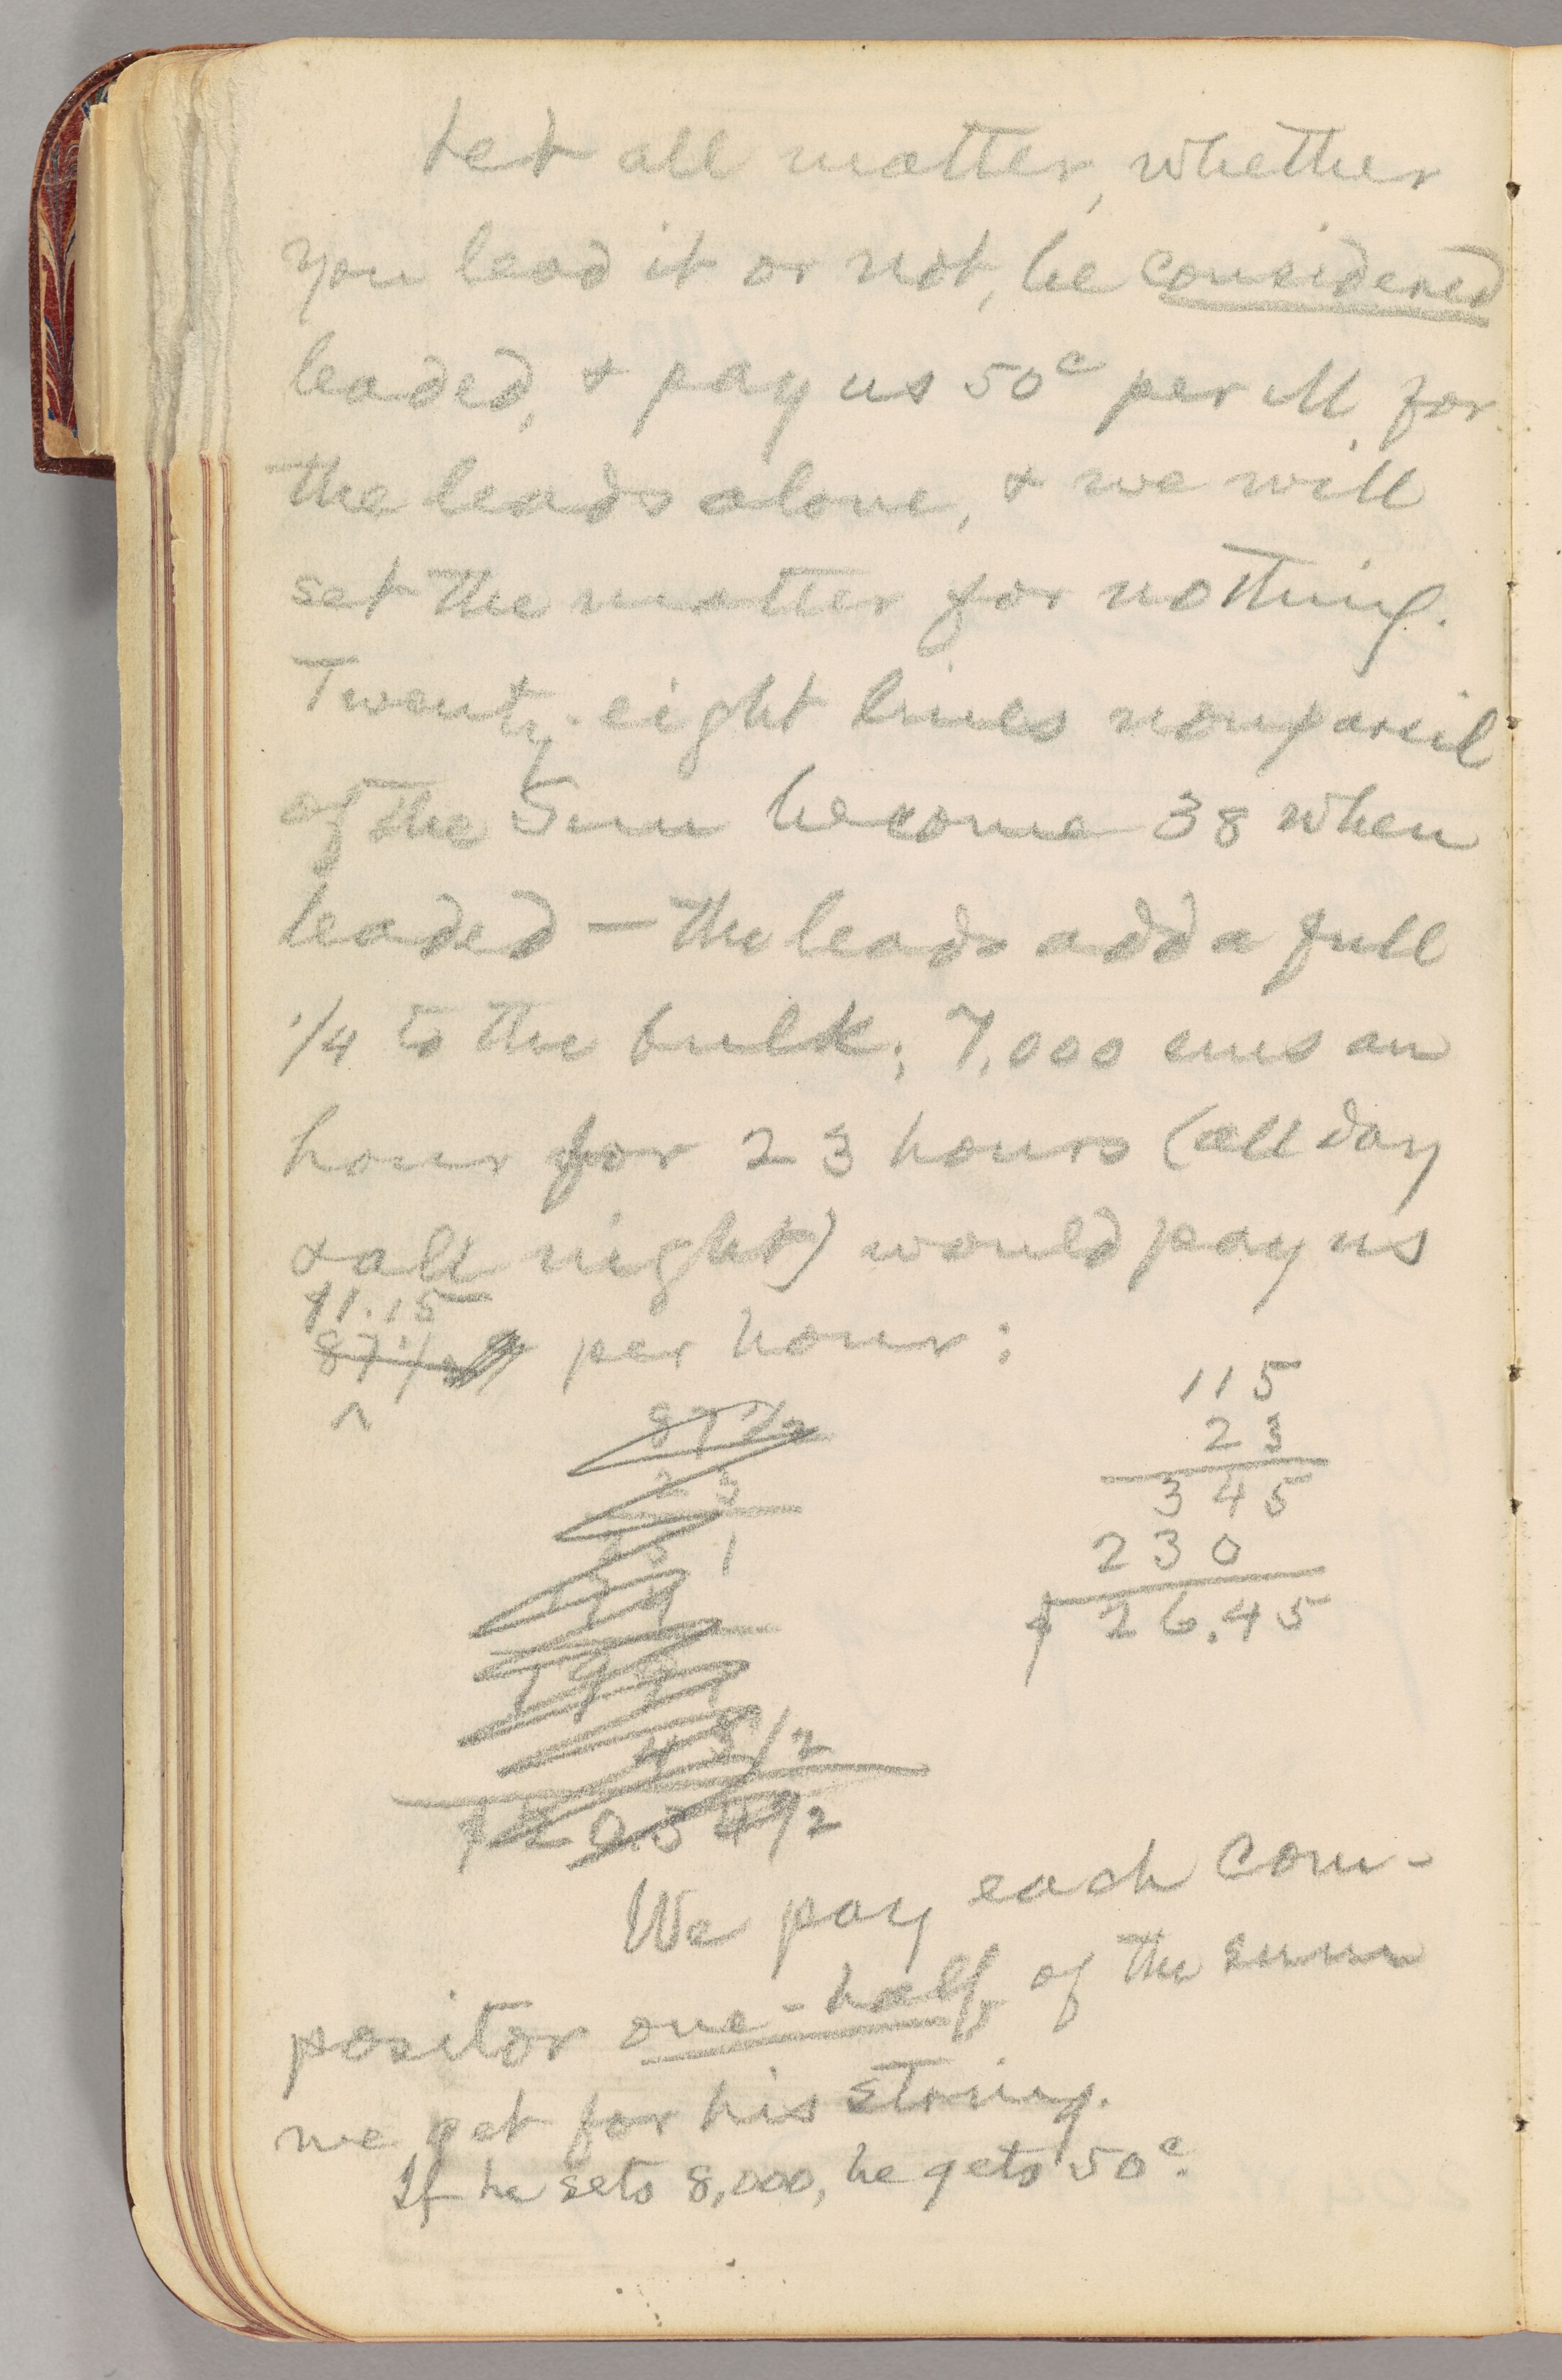 Let all matter, whether
you lead it or not, be considered
leaded, & pay us 50c per M. for
the leads alone, & we will
set the matter for nothing.
Twenty-eight lines nonpareil
of the Sun become 38 when
leaded — the leads add a full
1/4 to the bulk; 7,000 ems an
hour for 23 hours (all day
& all night) would pay us
$1.15
87 1/2 per hour:
87 1/2
23
115
23
345
230
$26.45
45/2
We pay each com-
positor one-half of the sum
we get for his string.
If he sets 8,000, he gets 50c.